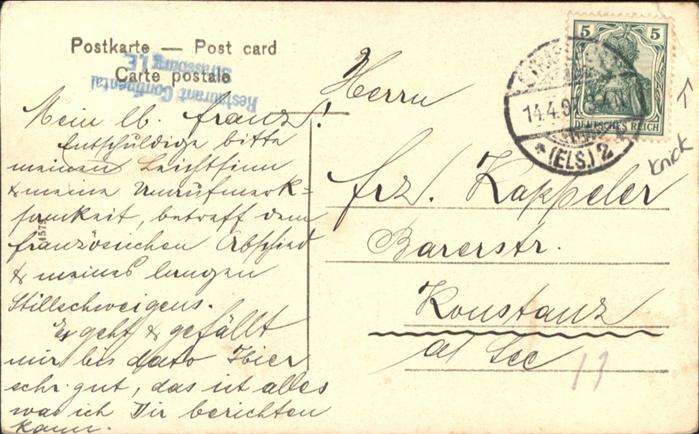 Postkarte — Post card
Carte postale
Restaurant Continental
Strassburg i. E.
Mein lb. Franz!
Entschuldige bitte
meinen Leichtsinn
& meine Unaufmerk=
samkeit, betreff dem
französischen Abschied
& meines langen
Stillschweigens.
Es geht & gefällt
mir bis dato hier
sehr gut, das ist alles
was ich Dir berichten
kann.
Herrn
frz. Kappeler
Barerstr.
Konstanz
at See
5 5
DEUTSCHES REICH
14.4.
* (ELS.) 2 *
knick